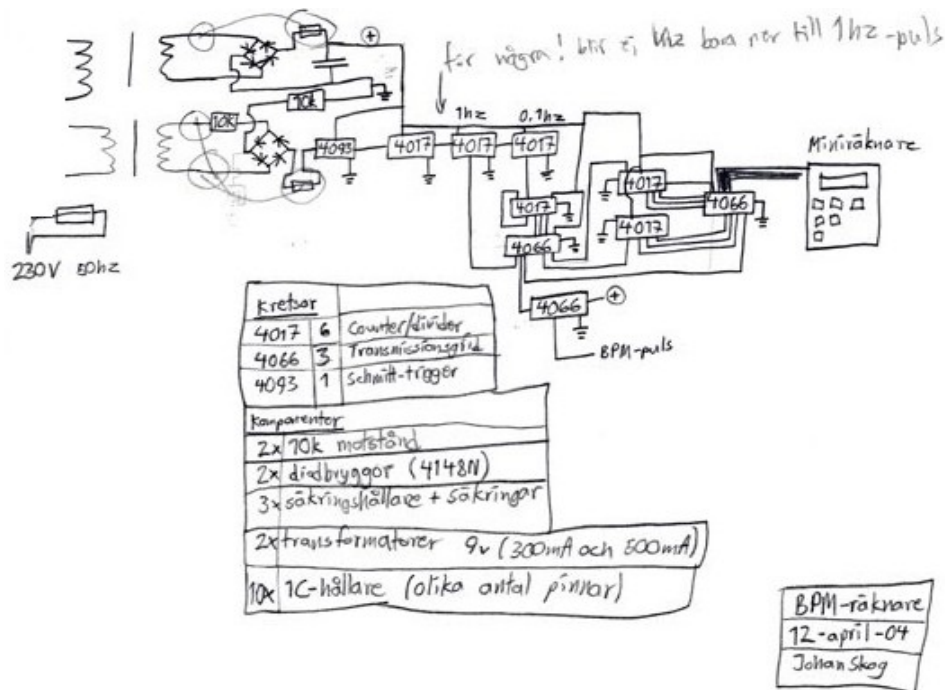 +
för några! blir ej khz bara ner till 1hz-puls
10k
10k
1hz
0.1hz
4093
4017
4017
4017
Miniräknare
4017
4017
4066
4017
4066
230V 50hz
4066
+
BPM-puls
Kretsar
4017 6 Counter/divider
4066 3 Transmissionsgrid
4093 1 Schmitt-trigger
Komponenter
2x 10k motstånd
2x diodbryggor (4148N)
3x säkringshållare + säkringar
2x transformatorer 9v (300mA och 500mA)
10x IC-hållare (olika antal pinnar)
BPM-räknare
12-april-04
Johan Skog